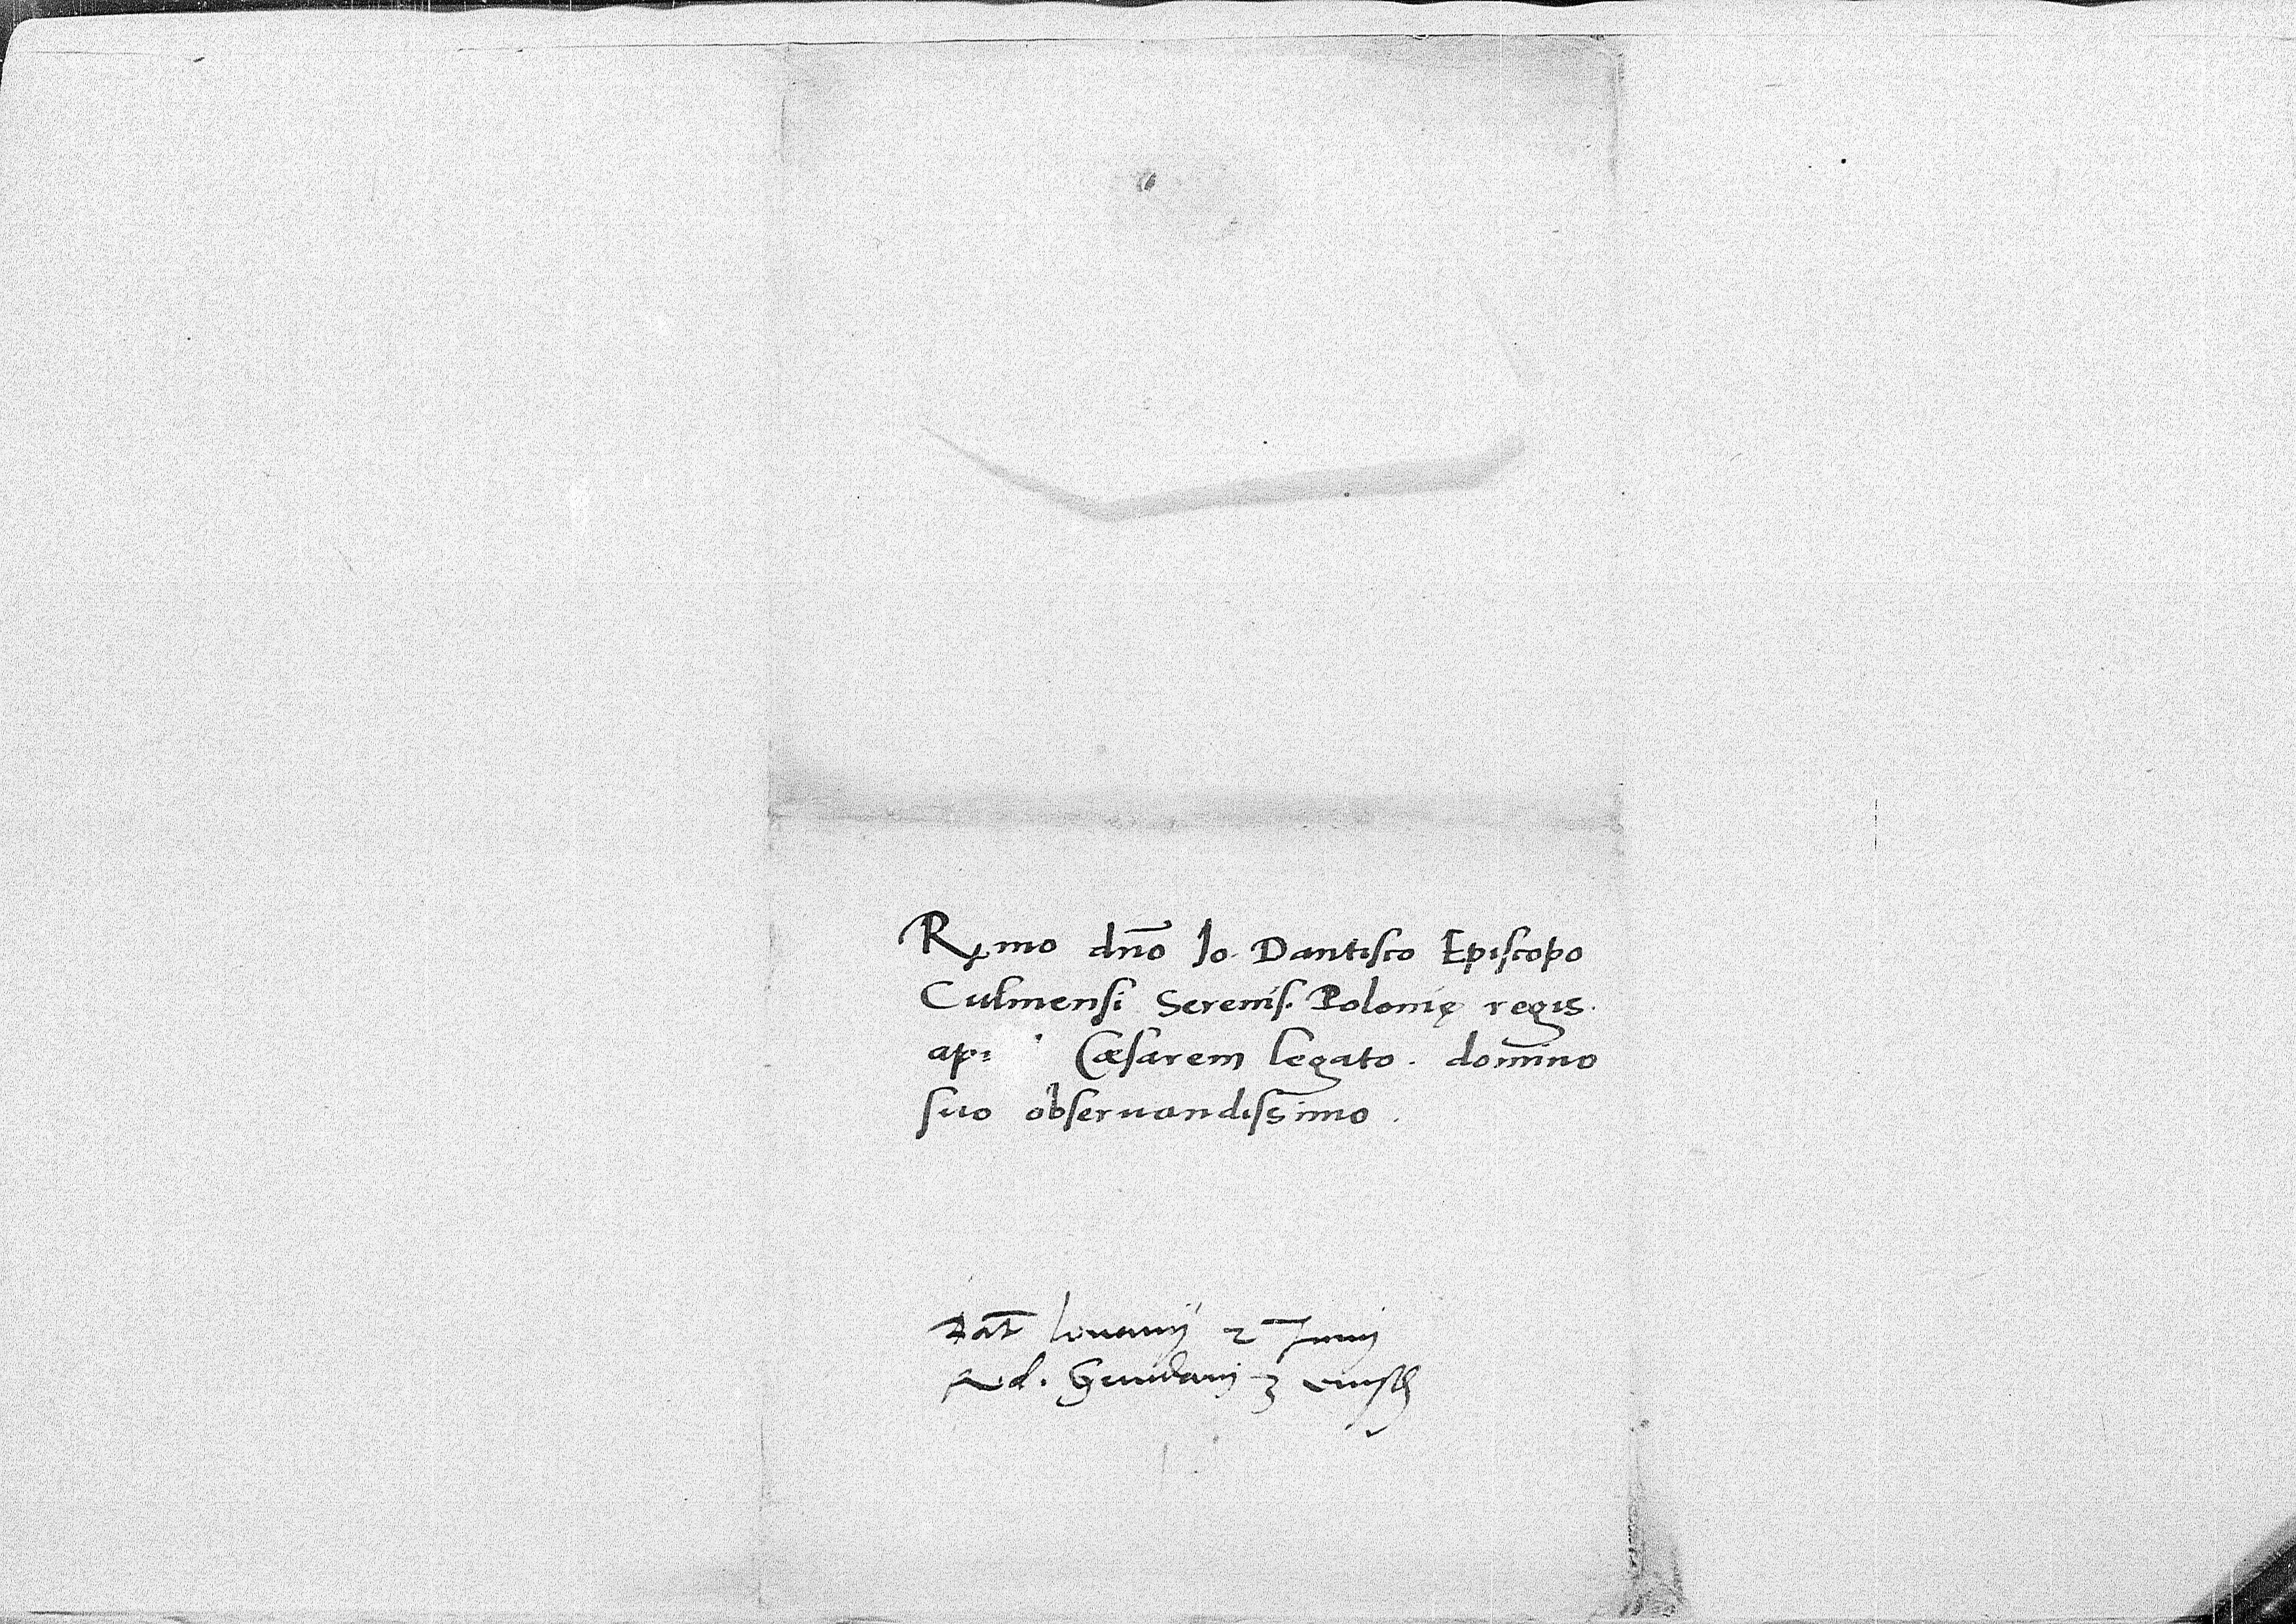 Rmo dno Io. Dantisco Episcopo
Culmensi Sereniss. Polonię regis.
ap Cæsarem legato. domino
suo observandissimo.
Dat Lovanij 2 Junij
Red. Gandavi 3 eiusdem